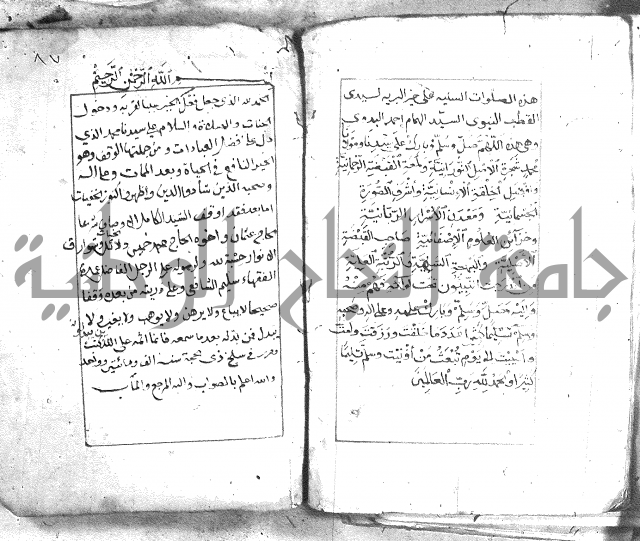 هذه الصلوات السنيه على خير البريه لسيدى
القطب النبوى السيد الهمام احمد البدوى
وهى هذه اللهم صل وسلم وبارك على سيدنا ومولانا
محمد شجرة الاصل النورانية ولمعة القبضة الرحمانية
وافضل الخليقة الانسانية واشرف الصورة
الجسمانية ومعدن الاسرار الربانية
وخزائن العلوم الاصطفائية صاحب القبضة
والبهجة السنية والرتبة العلية
النبيون تحت لوائه فهم منه
واليه وصل وسلم وبارك عليه وعلى اله وصحبه
وسلم عدد ما خلقت ورزقت وامت
واحييت الى يوم تبعث من افنيت وسلم تسليما
كثيرا والحمد لله رب العالمين
٨٧
بسم الله الرحمن الرحيم
الحمد لله الذى جعل فعل الخير سببا لقربه ودخول
الجنات والصلاة والسلام على سيدنا محمد الذي
دل على فضل العبادات ومن جملتها الوقف وهو
الخير النافع في الحياة وبعد الممات وعلى اله
وصحبه الذين شادوا الدين واظهروا
اما بعد فقد اوقف السيد الكامل
واخوه الحاج
الانوار حشية لله على الرجل الفاضل عمدة
الفقهاء سليم الشافعي وعلى وريثه من بعده وقفا
صحيحا لا يباع ولا يرهن ولا يوهب ولا يغير ولا
يبدل فمن بدله بعد ما سمعه فانما اثمه على الذين
وحرر في سلخ ذى سنة الف ومائتين وواحد
والله اعلم بالصواب واليه المرجع والمآب
جامعة النجاح الوطنية